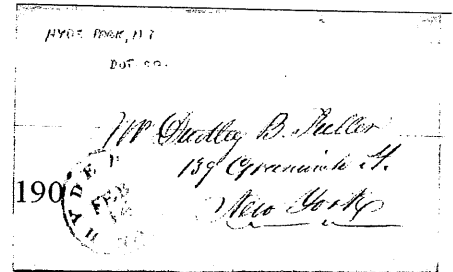 HYDE PARK, N Y
DUT. CO.
Mr Dudley B. Fuller
139 Greenwich St.
New York
190
HYDE
FEB